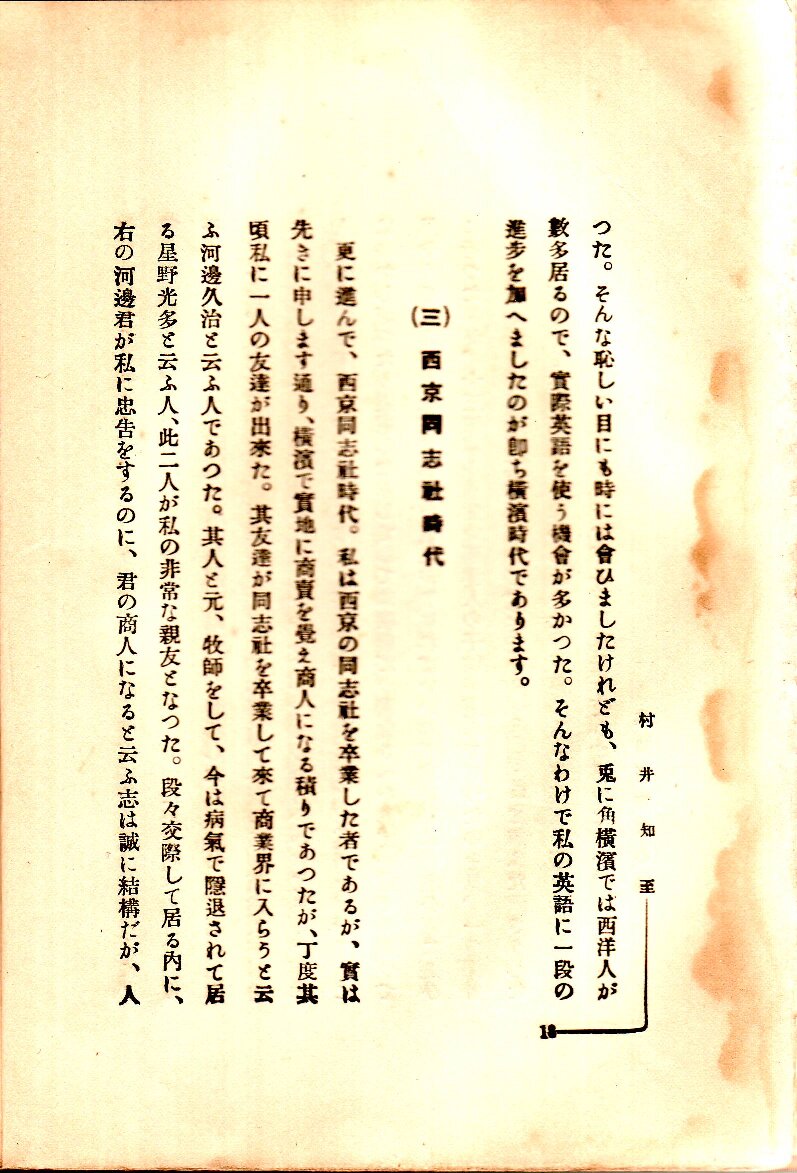 村井知至
つた。そんな恥しい目にも時には會ひましたけれども、兎に角橫濱では西洋人が
數多居るので、實際英語を使う機會が多かつた。そんなわけで私の英語に一段の
進步を加へましたのが卽ち橫濱時代であります。
(三) 西京同志社時代
更に進んで、西京同志社時代。私は西京の同志社を卒業した者であるが、實は
先きに申します通り、橫濱で實地に商賣を覺え商人になる積りであつたが、丁度其
頃私に一人の友達が出來た。其友達が同志社を卒業して來て商業界に入らうと云
ふ河邊久治と云ふ人であつた。其人と元、牧師をして、今は病氣で隱退されて居
る星野光多と云ふ人、此二人が私の非常な親友となつた。段々交際して居る內に、
右の河邊君が私に忠告をするのに、君の商人になると云ふ志は誠に結構だが、人
18